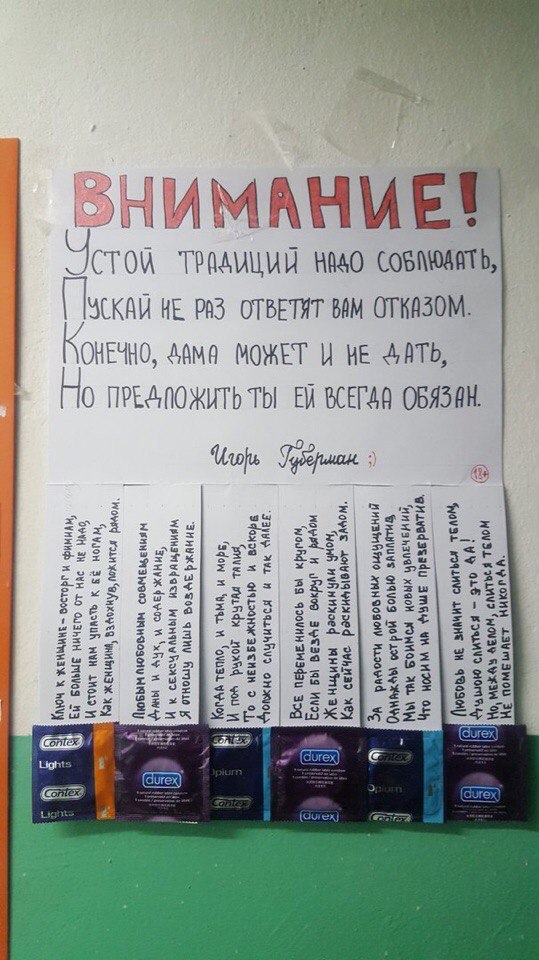 ВНИМАНИЕ!
УСТОЙ ТРАДИЦИЙ НАДО СОБЛЮДАТЬ,
ПУСКАЙ НЕ РАЗ ОТВЕТЯТ ВАМ ОТКАЗОМ.
КОНЕЧНО, ДАМА МОЖЕТ И НЕ ДАТЬ,
НО ПРЕДЛОЖИТЬ ТЫ ЕЙ ВСЕГДА ОБЯЗАН.
Игорь Губерман ;)
18+
КЛЮЧ К ЖЕНЩИНЕ – ВОСТОРГ И ФИМИАМ,
ЕЙ БОЛЬШЕ НИЧЕГО ОТ НАС НЕ НАДО,
И СТОИТ НАМ УПАСТЬ К ЕЁ НОГАМ,
КАК ЖЕНЩИНА, ВЗДОХНУВ, ЛОЖИТСЯ РЯДОМ.
ЛЮБЫМ ЛЮБОВНЫМ СОВМЕЩЕНИЯМ
ДАНЫ И ДУХ, И СОДЕРЖАНИЕ,
И К СЕКСУАЛЬНЫМ ИЗВРАЩЕНИЯМ
Я ОТНОШУ ЛИШЬ ВОЗДЕРЖАНИЕ.
КОГДА ТЕПЛО, И ТЬМА, И МОРЕ,
И ПОД РУКОЙ КРУТАЯ ТАЛИЯ,
ТО С НЕИЗБЕЖНОСТЬЮ И ВСКОРЕ
ДОЛЖНО СЛУЧИТЬСЯ И ТАК ДАЛЕЕ.
ВСЕ ПЕРЕМЕНИЛОСЬ БЫ КРУГОМ,
ЕСЛИ БЫ ВЕЗДЕ ВОКРУГ И РЯДОМ
ЖЕНЩИНЫ РАСКИНУЛИ УМОМ,
КАК СЕЙЧАС РАСКИДЫВАЮТ ЗАДОМ.
ЗА РАДОСТИ ЛЮБОВНЫХ ОЩУЩЕНИЙ
ОДНАЖДЫ ОСТРОЙ БОЛЬЮ ЗАПЛАТИВ,
МЫ ТАК БОИМСЯ НОВЫХ УВЛЕЧЕНИЙ,
ЧТО НОСИМ НА ДУШЕ ПРЕЗЕРВАТИВ.
ЛЮБОВЬ НЕ ЗНАЧИТ СЛИТЬСЯ ТЕЛОМ,
ДУШОЮ СЛИТЬСЯ – ЭТО ДА!
НО, МЕЖДУ ДЕЛОМ, СЛИТЬСЯ ТЕЛОМ
НЕ ПОМЕШАЕТ НИКОГДА.
Contex
Lights
Contex
Lights
durex
Contex
Opium
Contex
durex
durex
Contex
Opium
Contex
durex
durex